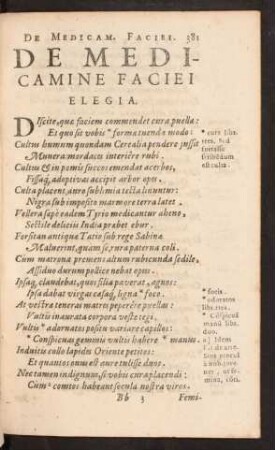 DE MEDICAM. FACIEI. 381
DE MEDI-
CAMINE FACIEI
ELEGIA.
DIscite, quæ faciem commendet cura puellæ:
Et quo sit vobis * forma tuenda modo:
Cultus humum quondam Cerealia pendere jussit
Munera: mordaces interiêre rubi.
Cultus & in pomis succos emendat acerbos,
Fissaq́, adoptivas accipit arbor opes.
Culta placent, auro sublimia tecta linuntur:
Nigra sub imposito marmore terra latet.
Vellera sæpe eadem Tyrio medicantur aheno,
Sectile deliciis India præbet ebur.
Forsitan antiquæ Tatio sub rege Sabinæ
Maluerint, quàm se, rura paterna coli.
Cùm matrona premens altum rubicunda sedile,
Assiduo durum pollice nebat opus.
Ipsaq́, claudebat, quos filia paverat, agnos:
Ipsa dabat virgas cæsaq́, ligna * foco.
At vestræ teneras matres peperêre puellas:
Vultis inaurata corpora veste tegi.
Vultis * adornatos positu variare capillos:
* Conspicuas gemmis vultis habere * manus.
Induitis collo lapides Oriente petitos:
Et quantos onus est aure tulisse duos.
Nec tamen indignum, si vobis cura placendi:
Cùm comtos habeant secula nostra viros.
Bb 3 Femi-
* cura libe-
* focis.
* odoratos